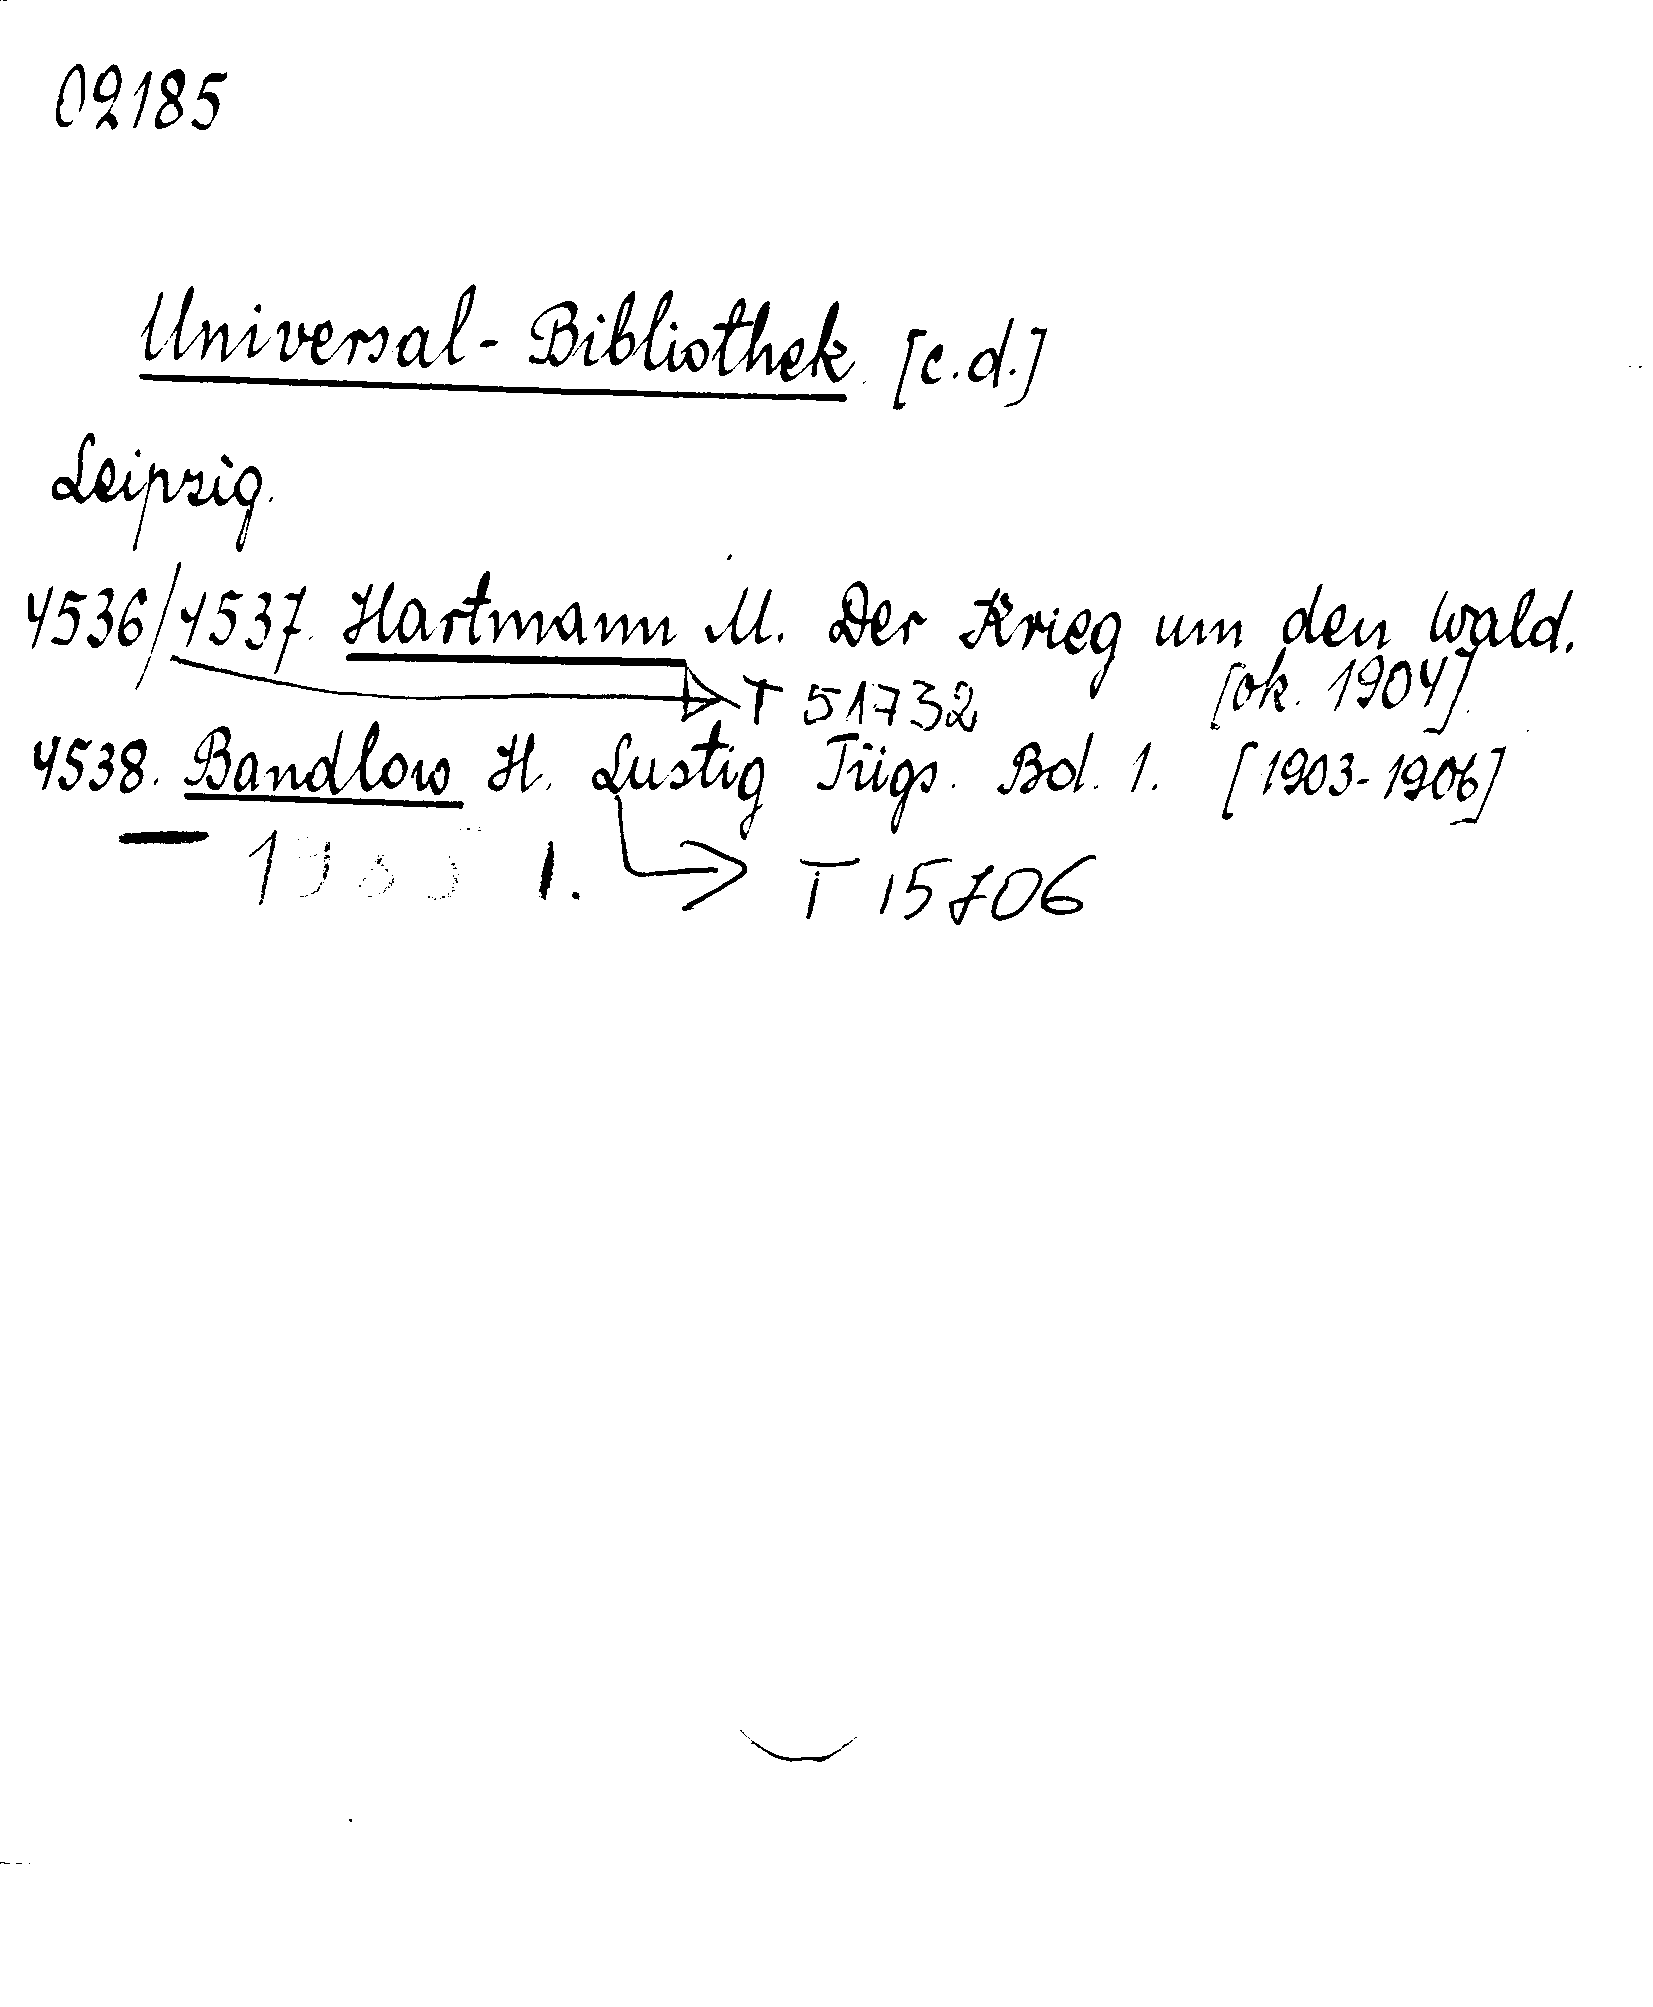 02185
Universal-Bibliothek [c.d.]
Leipzig.
4536/4537. Hartmann M. Der Krieg um den Wald.
[ok. 1904]
T 51732
4538. Bandlow H. Lustig Tügs. Bd. 1. [1903-1906]
1. T 15706